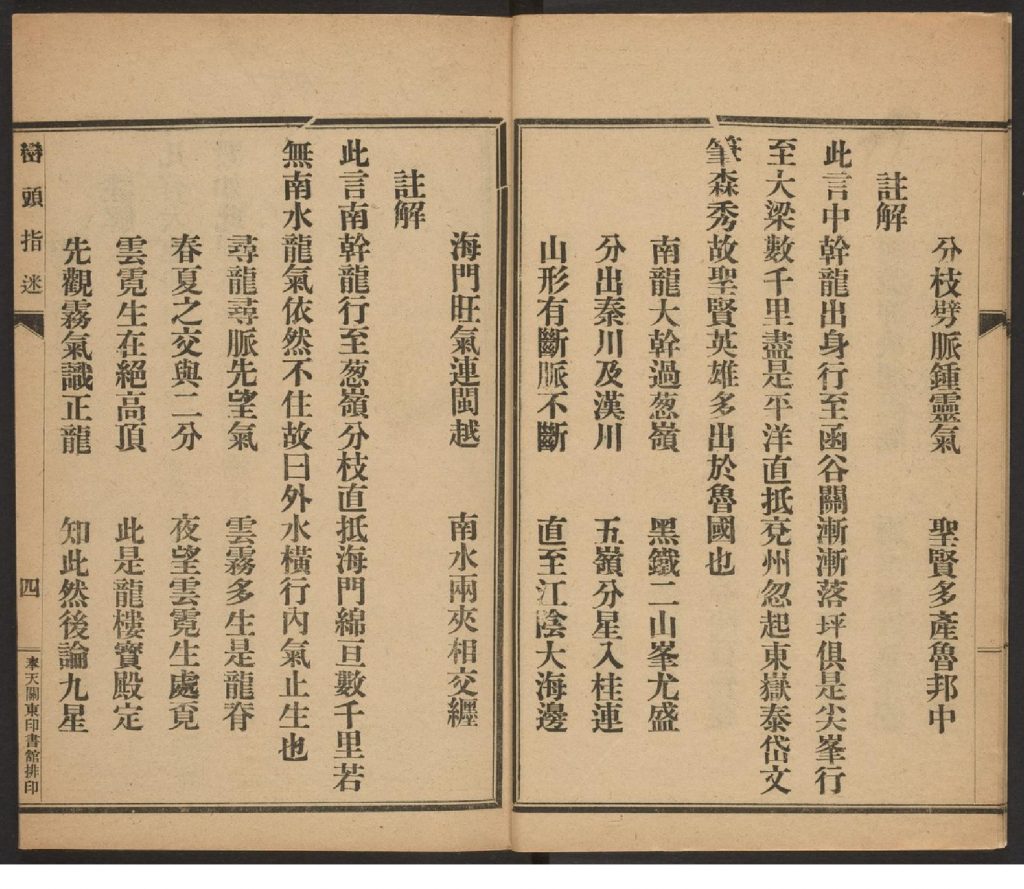 分枝劈脈鍾靈氣　聖賢多產魯邦中
註解
此言中幹龍出身行至函谷關漸漸落坪俱是尖峯行
至大梁數千里盡是平洋直抵兗州忽起東嶽泰岱文
筆森秀故聖賢英雄多出於魯國也
南龍大幹過葱嶺　黑鐵二山峯尤盛
分出秦川及漢川　五嶺分星入桂連
山形有斷脈不斷　直至江陰大海邊
海門旺氣連閩越　南水兩夾相交纏
註解
此言南幹龍行至葱嶺分枝直抵海門綿亘數千里若
無南水龍氣依然不住故曰外水橫行內氣止生也
尋龍尋脈先望氣　雲霧多生是龍脊
春夏之交與二分　夜望雲霓生處覓
雲霓生在絕高頂　此是龍樓寶殿定
先觀霧氣識正龍　知此然後論九星
巒頭指迷
四
奉天關東印書館排印